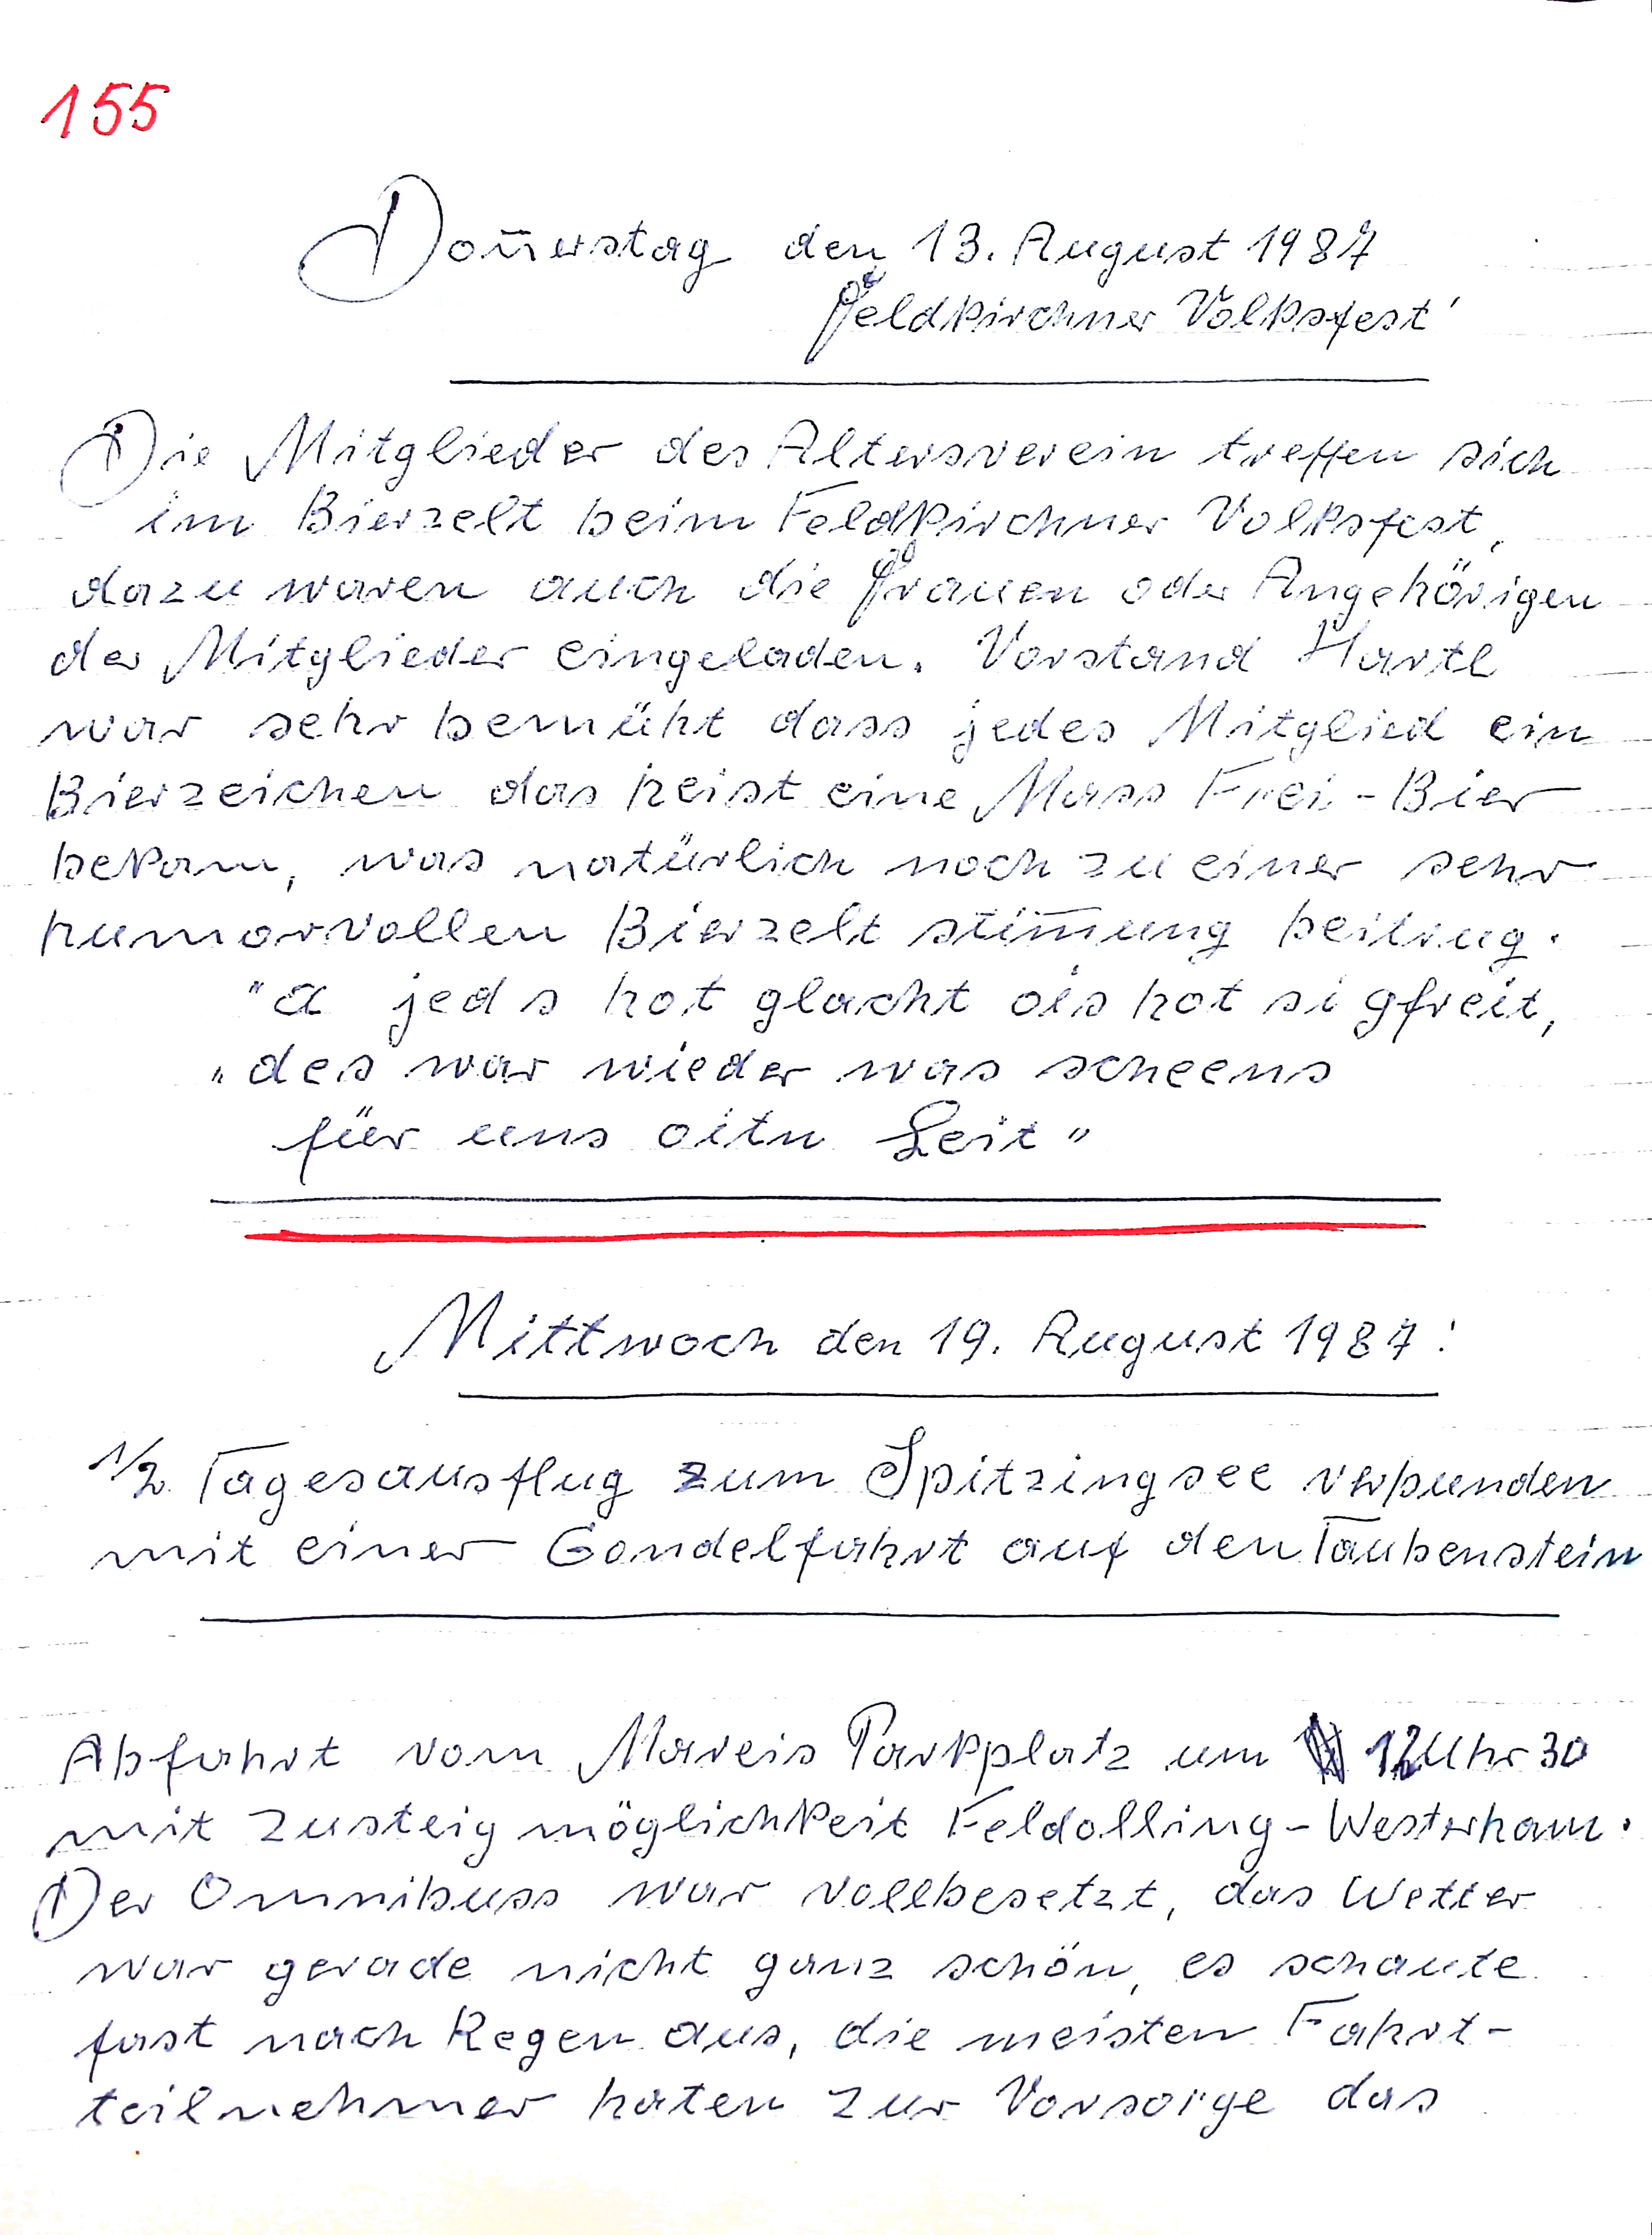 155
Don̄erstag den 13. August 1987
Feldkirchner Volksfest'
Die Mitglieder des Altersverein treffen sich
im Bierzelt beim Feldkirchner Volksfest,
dazu waren auch die Frauen oder Angehörigen
der Mitglieder eingeladen. Vorstand Hartl
war sehr bemüht dass jedes Mitglied ein
Bierzeichen das heist eine Mass Frei-Bier
bekam, was natürlich noch zu einer sehr
humorvollen Bierzelt stim̄ung beitrug.
"a jeds hot glacht ois hot si gfreit,
„des war wieder was scheens
für uns oitn Leit"
Mittwoch den 19. August 1987!
1/2 Tagesausflug zum Spitzingsee verbunden
mit einer Gondelfahrt auf den Taubenstein
Abfahrt vom Mareis Parkplatz um 12 Uhr 30
mit Zusteigmöglichkeit Feldolling-Westerham.
Der Omnibuss war vollbesetzt, das Wetter
war gerade nicht ganz schön, es schaute
fast nach Regen aus, die meisten Fahrt-
teilnehmer haten zur Vorsorge das